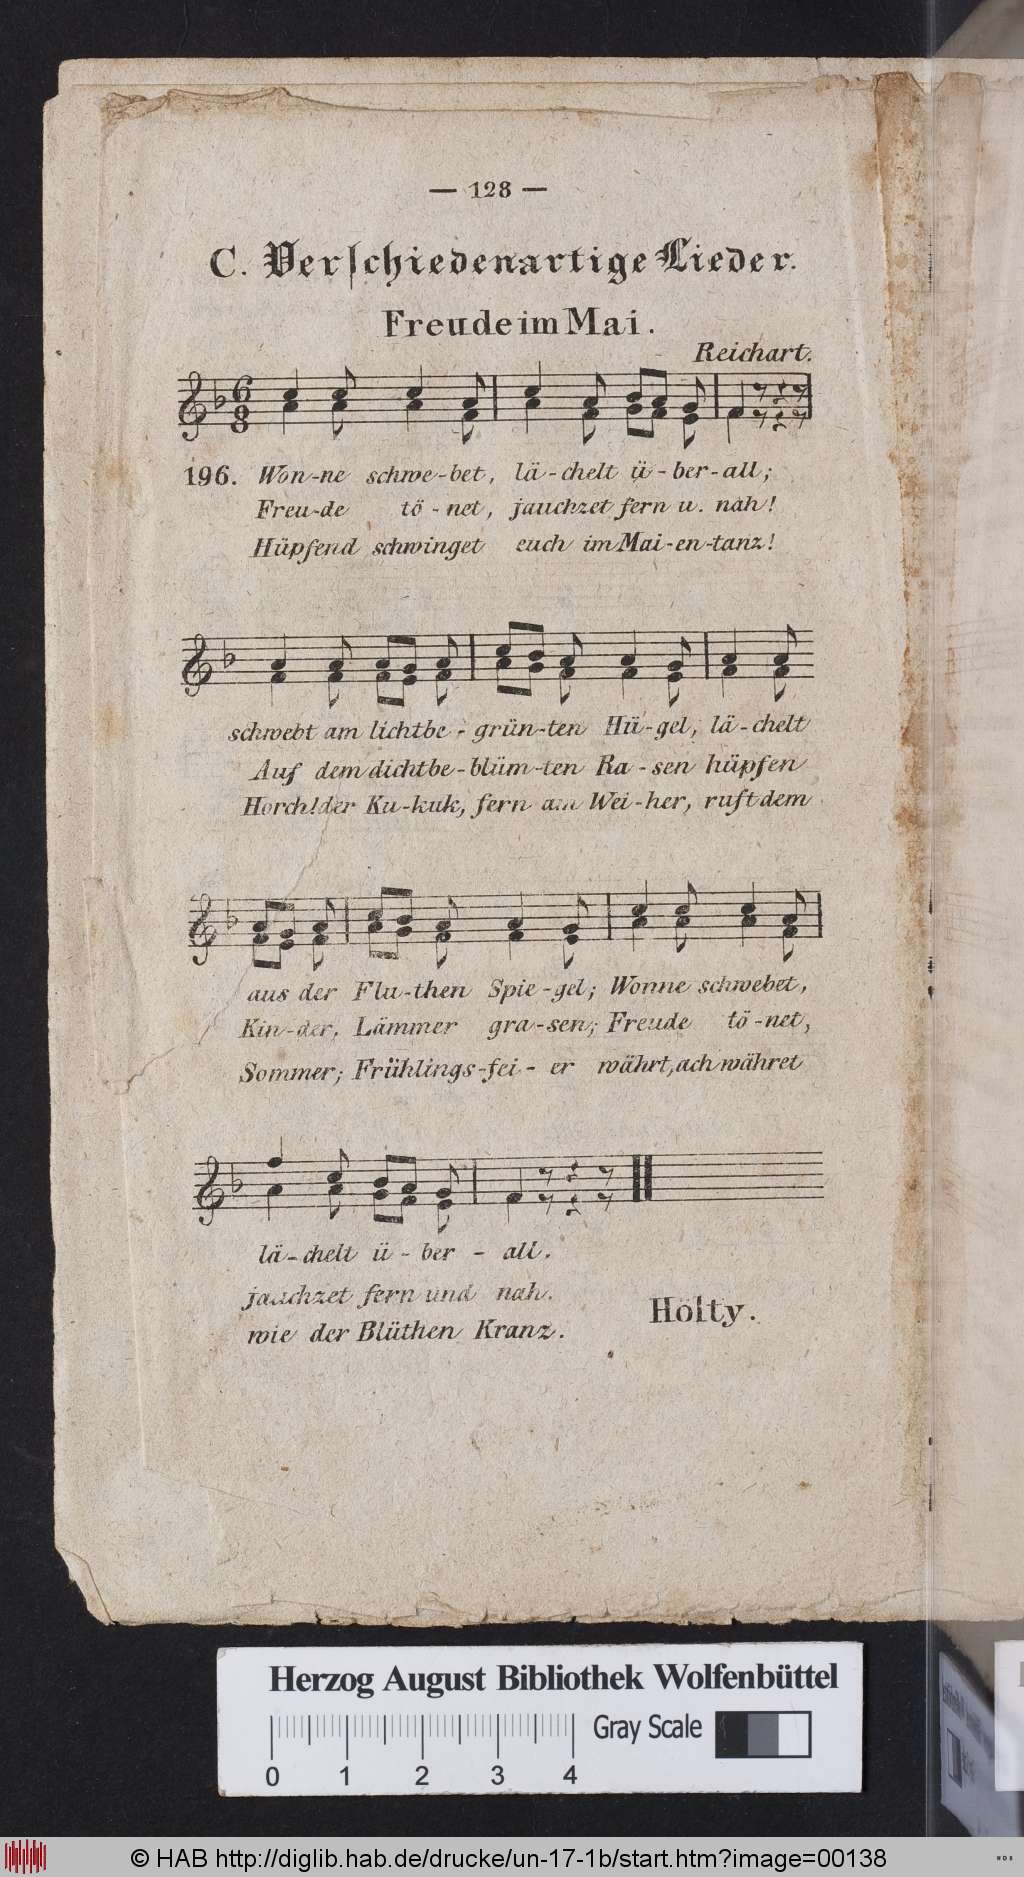 — 128 —
C. Verschiedenartige Lieder.
Freude im Mai.
Reichart.
196. Won-ne schwe-bet, lä-chelt ü-ber-all;
Freu-de tö-net, jauchzet fern u. nah!
Hüpfend schwinget euch im Mai-en-tanz!
schwebt am lichtbe-grün-ten Hü-gel, lä-chelt
Auf dem dichtbe-blüm-ten Ra-sen hüpfen
Horch! der Ku-kuk, fern am Wei-her, ruft dem
aus der Flu-then Spie-gel; Wonne schwebet,
Kin-der, Lämmer gra-sen; Freude tö-net,
Sommer; Frühlings-fei-er währt, ach währet
lä-chelt ü-ber-all.
jauchzet fern und nah.
wie der Blüthen Kranz.
Hölty.
Herzog August Bibliothek Wolfenbüttel
Gray Scale
0 1 2 3 4
© HAB http://diglib.hab.de/drucke/un-17-1b/start.htm?image=00138